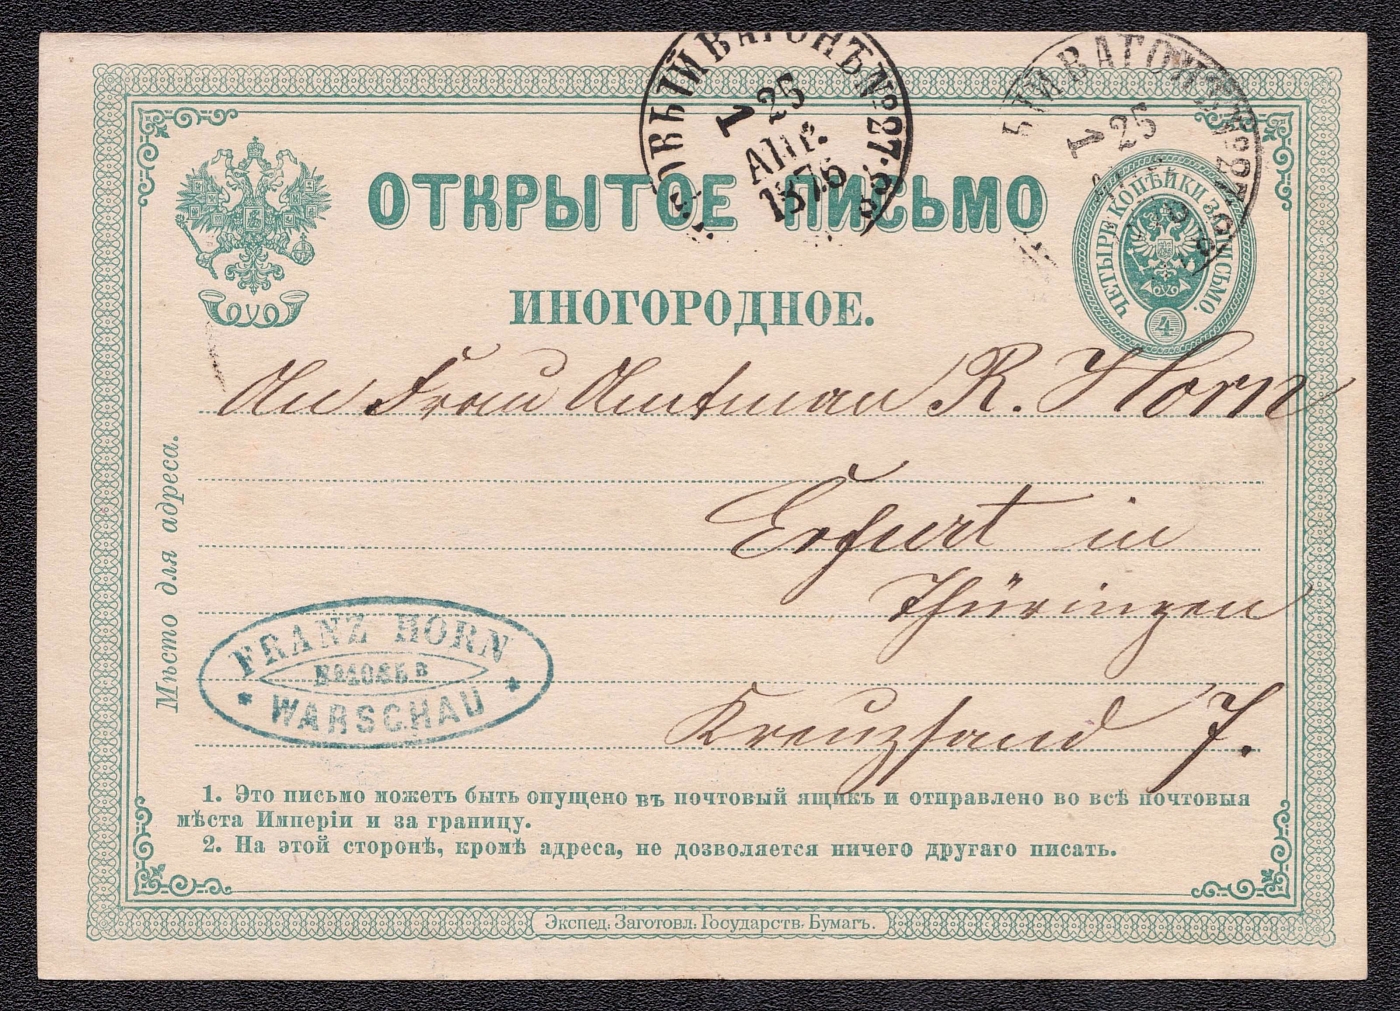 ВАГОНЪ № 27-28
1 25
АПР.
1876
ВАГОНЪ
1 25
ОТКРЫТОЕ ПИСЬМО
ЧЕТЫРЕ КОПѢЙКИ ЗА ПИСЬМО.
4
ИНОГОРОДНОЕ.
An Frau Amtman R. Horn
Erfurt in
Thüringen
Kreuzsand 7.
Мѣсто для адреса.
FRANZ HORN
WARSCHAU
1. Это письмо можетъ быть опущено въ почтовый ящикъ и отправлено во всѣ почтовыя
мѣста Имперіи и за границу.
2. На этой сторонѣ, кромѣ адреса, не дозволяется ничего другаго писать.
Экспед. Заготовл. Государств. Бумагъ.